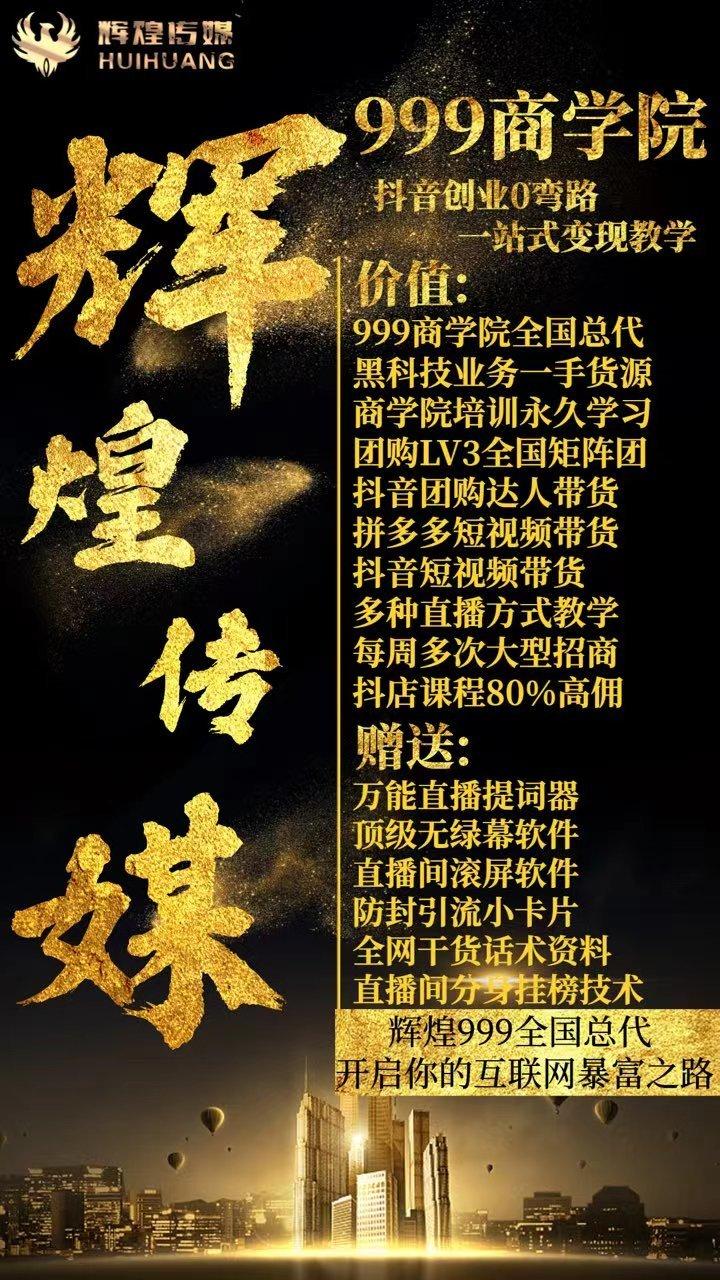 辉煌传媒
HUIHUANG
辉煌传媒
999商学院
抖音创业0弯路
一站式变现教学
价值:
999商学院全国总代
黑科技业务一手货源
商学院培训永久学习
团购LV3全国矩阵团
抖音团购达人带货
拼多多短视频带货
抖音短视频带货
多种直播方式教学
每周多次大型招商
抖店课程80%高佣
赠送:
万能直播提词器
顶级无绿幕软件
直播间滚屏软件
防封引流小卡片
全网干货话术资料
直播间分身挂榜技术
辉煌999全国总代
开启你的互联网暴富之路